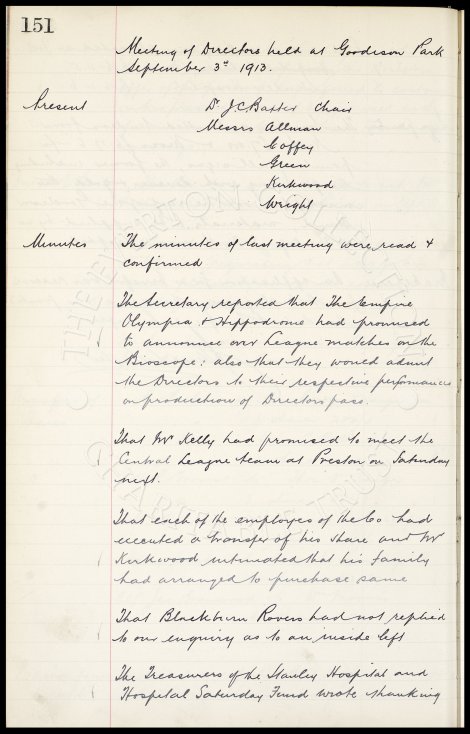 151
Meeting of Directors held at Goodison Park
September 3rd 1913.
Present Dr. J.C. Baxter Chair
Messrs Allman
Coffey
Green
Kirkwood
Wright
Minutes The minutes of last meeting were read &
confirmed
The Secretary reported that The Empire
Olympia & Hippodrome had promised
to announce our League matches on the
Bioscope: also that they would admit
the Directors to their respective performances
on production of Directors pass.
That Mr Kelly had promised to meet the
Central League team at Preston on Saturday
next.
That each of the employes of the Co had
executed a transfer of his share and Mr
Kirkwood intimated that his family
had arranged to purchase same
That Blackburn Rovers had not replied
to our enquiry as to an inside left
The Treasurers of the Stanley Hospital and
Hospital Saturday Fund wrote thanking
THE EVERTON COLLECTION
CHARITABLE TRUST